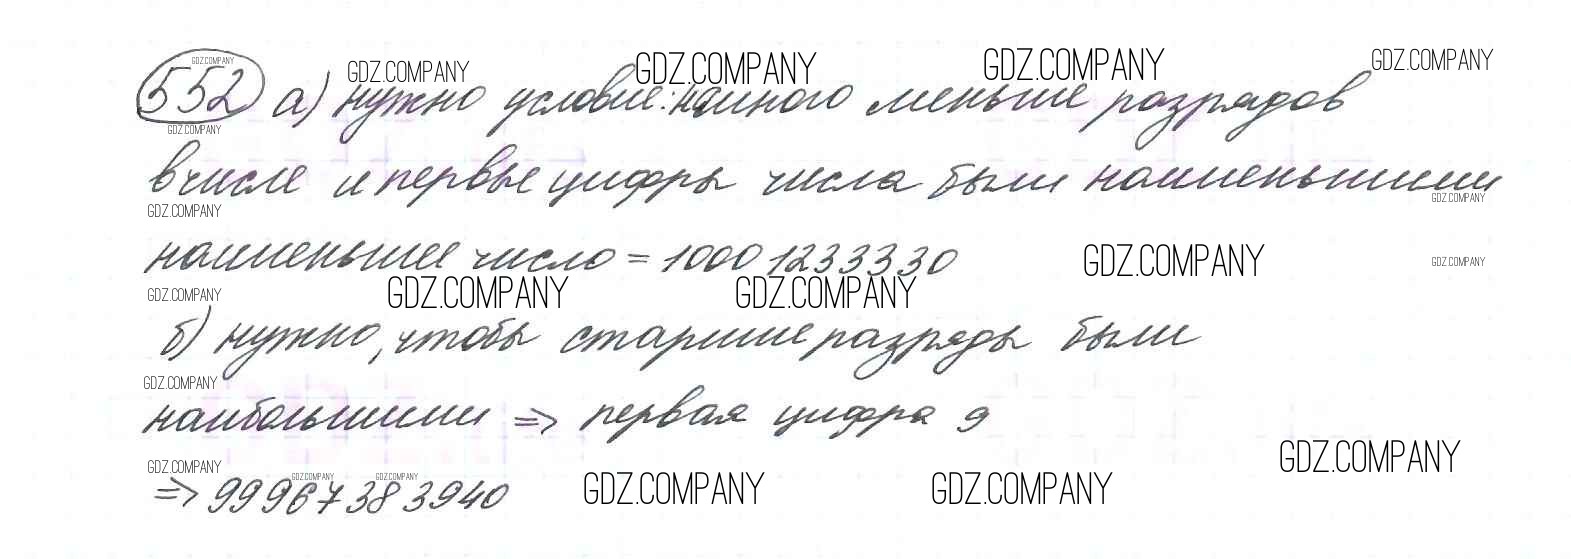 GDZ.COMPANY
GDZ.COMPANY GDZ.COMPANY GDZ.COMPANY GDZ.COMPANY
552 а) нужно условие: намного меньше разрядов
GDZ.COMPANY
в числе и первые цифры числа были наименьшими
GDZ.COMPANY GDZ.COMPANY
наименьшее число = 10001233330
GDZ.COMPANY GDZ.COMPANY
GDZ.COMPANY GDZ.COMPANY GDZ.COMPANY
б) нужно, чтобы старшие разряды были
GDZ.COMPANY
наибольшими => первая цифра 9
GDZ.COMPANY GDZ.COMPANY GDZ.COMPANY GDZ.COMPANY
=> 99967383940
GDZ.COMPANY GDZ.COMPANY